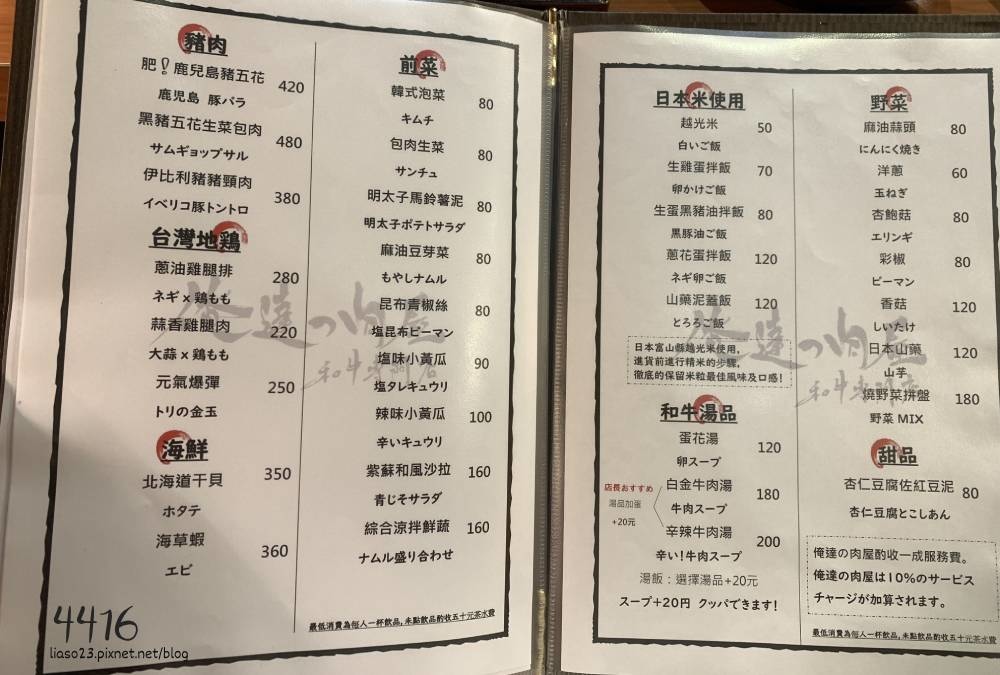 豬肉
肥!鹿兒島豬五花 420
鹿児島 豚バラ
黑豬五花生菜包肉 480
サムギョップサル
伊比利豬豬頸肉 380
イベリコ豚トントロ
台灣地鶏
蔥油雞腿排 280
ネギ x 鶏もも
蒜香雞腿肉 220
大蒜 x 鶏もも
元氣爆彈 250
トリの金玉
海鮮
北海道干貝 350
ホタテ
海草蝦 360
エビ
前菜
韓式泡菜 80
キムチ
包肉生菜 80
サンチュ
明太子馬鈴薯泥 80
明太子ポテトサラダ
麻油豆芽菜 80
もやしナムル
昆布青椒絲 80
塩昆布ピーマン
塩味小黃瓜 90
塩タレキュウリ
辣味小黃瓜 100
辛いキュウリ
紫蘇和風沙拉 160
青じそサラダ
綜合涼拌鮮蔬 160
ナムル盛り合わせ
最低消費為每人一杯飲品,未點飲品酌收五十元茶水費
俺達の肉屋
和牛専門店
4416
liaso23.pixnet.net/blog
日本米使用
越光米 50
白いご飯
生雞蛋拌飯 70
卵かけご飯
生蛋黑豬油拌飯 80
黒豚油ご飯
蔥花蛋拌飯 120
ネギ卵ご飯
山藥泥蓋飯 120
とろろご飯
日本富山縣越光米使用,
進貨前進行精米的步驟,
徹底的保留米粒最佳風味及口感!
和牛湯品
蛋花湯 120
卵スープ
店長おすすめ
湯品加蛋
+20元
白金牛肉湯 180
牛肉スープ
辛辣牛肉湯 200
辛い!牛肉スープ
湯飯:選擇湯品+20元
スープ+20円 クッパできます!
野菜
麻油蒜頭 80
にんにく焼き
洋蔥 60
玉ねぎ
杏鮑菇 80
エリンギ
彩椒 80
ピーマン
香菇 120
しいたけ
日本山藥 120
山芋
燒野菜拼盤 180
野菜 MIX
甜品
杏仁豆腐佐紅豆泥 80
杏仁豆腐とこしあん
俺達の肉屋酌收一成服務費。
俺達の肉屋は10%のサービス
チャージが加算されます。
最低消費為每人一杯飲品,未點飲品酌收五十元茶水費
俺達の肉屋
和牛専門店